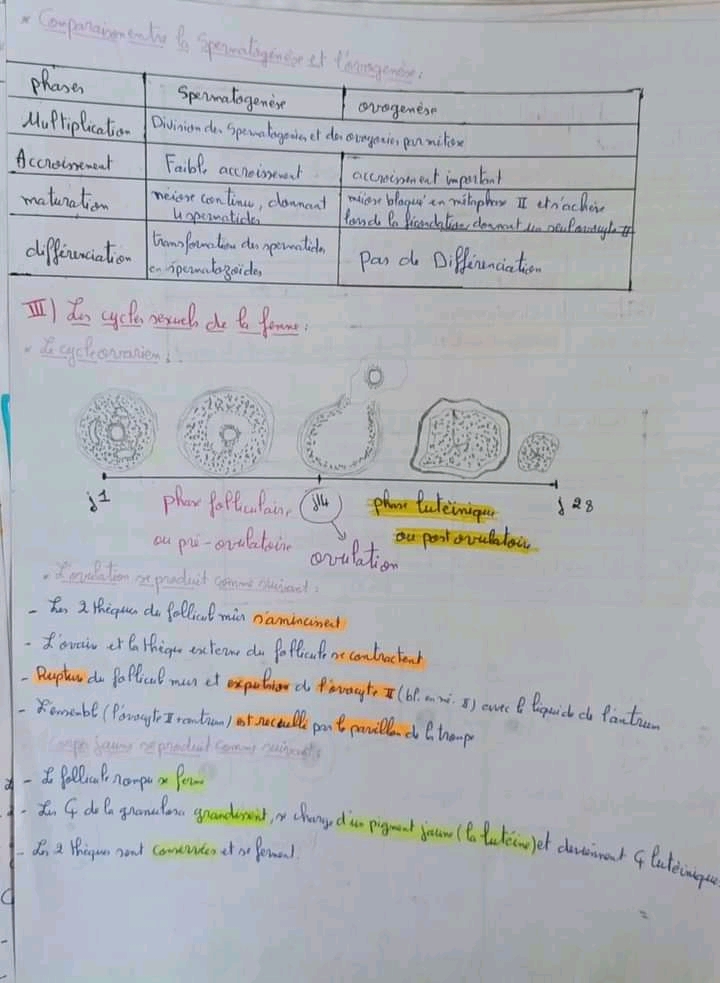 * Comparaison entre la Spermatogenèse et l'ovogenèse:
phases | Spermatogenèse | ovogenèse
Multiplication | Division des Spermatogonies et des ovogonies par mitose
Accroissement | Faible accroissement | accroissement important
maturation | méiose continu, donnant 4 spermatides | méiose bloqué en métaphase II et s'achève lors de la fécondation, donnant un seul ovocyte II
différenciation | transformation des spermatides en spermatozoïdes | pas de Différenciation
III) Les cycles sexuels de la femme:
* Le cycle ovarien:
j1 phase folliculaire j14 phase lutéinique j28
ou pré-ovulatoire ovulation ou post ovulatoire
* L'ovulation se produit comme suivant:
- Les 2 thèques du follicul mûr s'amincissent
- L'ovaire et la thèque externe du follicule se contractent
- Rupture du follicul mur et expulsion de l'ovocyte II (bl. en mé. II) avec le liquide de l'antrum
- L'ensembl (l'ovocyte II + antrum) est recueille par le pavillon de la trompe
Corps jaune se produit comme suivant:
- Le follicule rompu se ferme
- Les ₵ de la granulosa grandissent, se charge d'un pigment jaune (la lutéine) et deviennent ₵ lutéinique.
- Les 2 thèques sont conservées et se ferment.